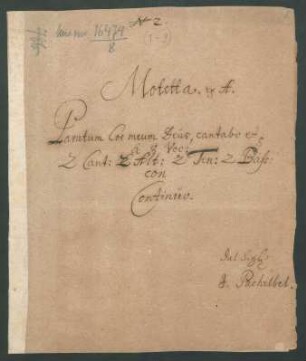 N 2.
Mus. ms. 16479
8
(1-9)
Motetta. ex A.
Paratum Cor meum Deus, cantabo et
à 8 Voc:
2 Cant: 2 Alt: 2 Ten: 2 Bass:
con
Continuo.
Dal Sigl:
J. Pachelbel.